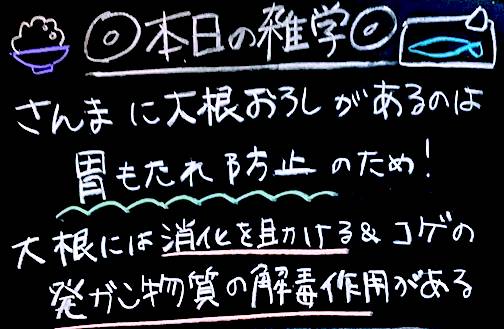 ◎本日の雑学◎
さんまに大根おろしがあるのは
胃もたれ防止のため!
大根には消化を助ける&コゲの
発がん物質の解毒作用がある